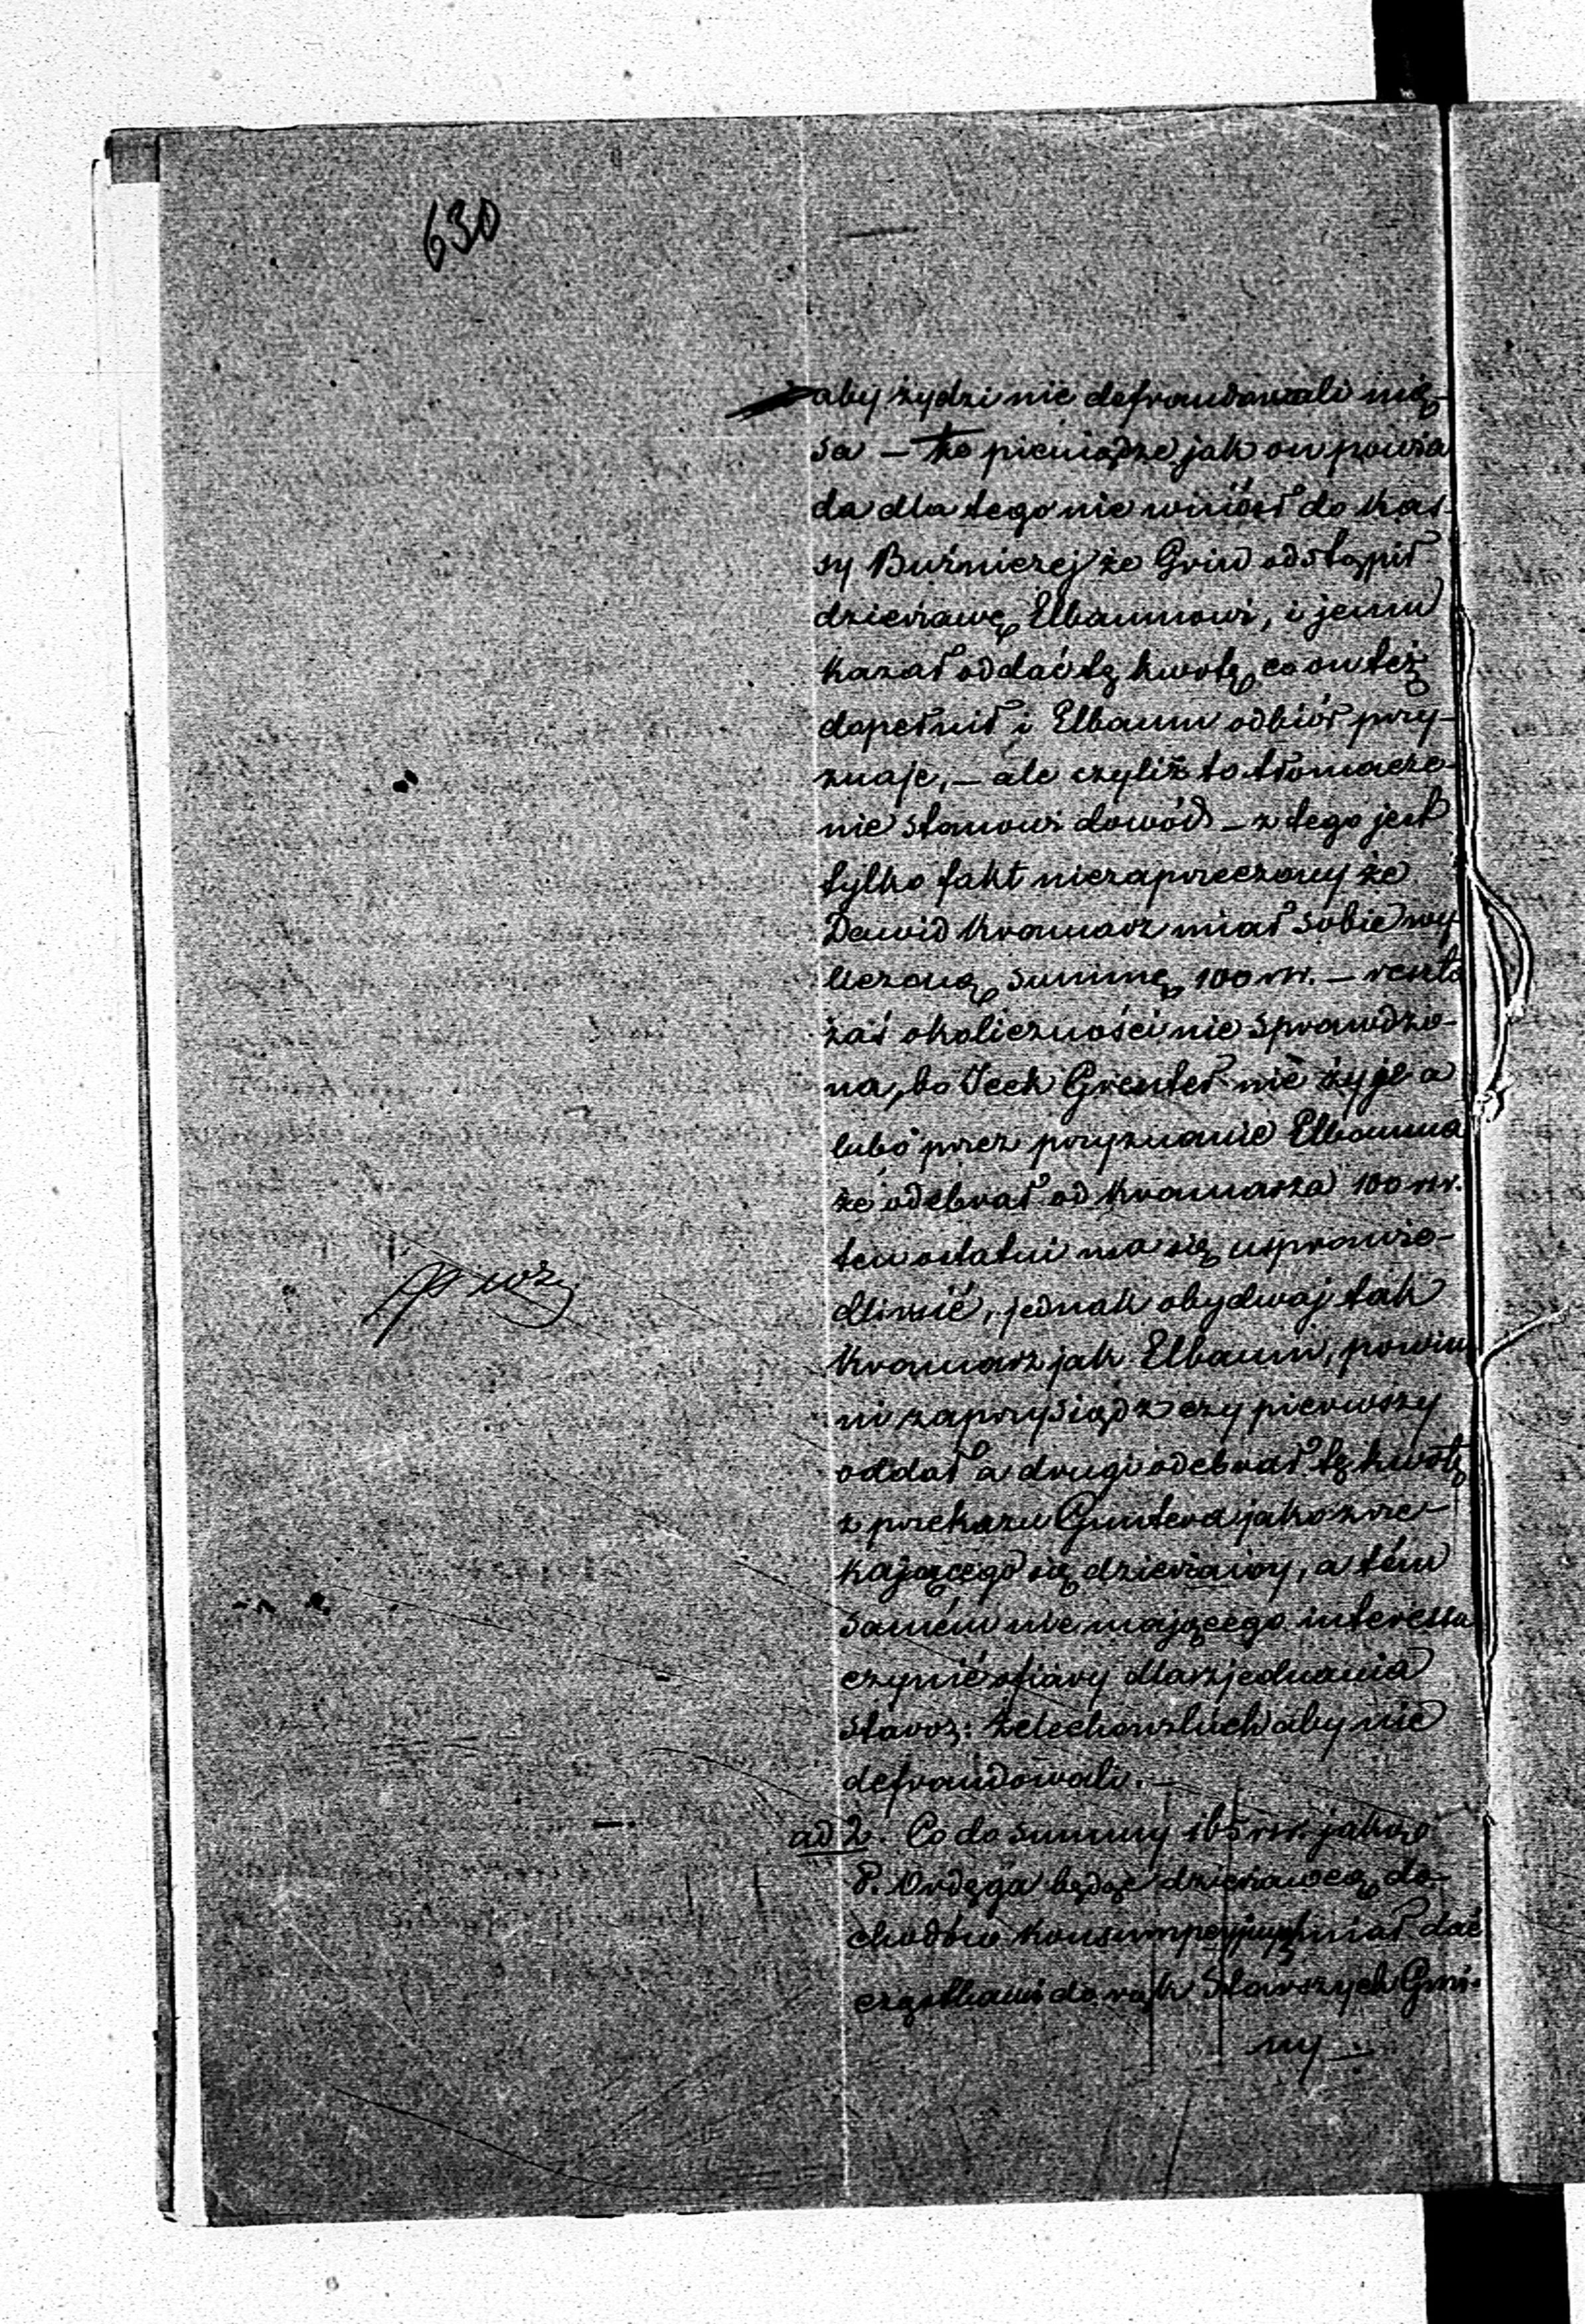 630
aby żydzi nie defraudowali mię-
sa – że pieniądze jak on powia
da dla tego nie wniósł do Kas-
sy Bużniczej że Grin odstąpił
dzierżawę Elbaumowi, i jemu
kazał oddać tę kwotę co on też
dopełnił i Elbaum odbiór przy-
znaje, – ale czyliż to tłomacze-
nie stanowi dowód – z tego jest
tylko fakt niezaprzeczony że
Dawid Kramarz miał sobie wy
liczoną summę 100 rsr. – reszta
zaś okoliczności nie sprawdzo-
na, bo Icek nie żyje a
lubo przez przyznanie Elbauma
że odebrał od Kramarza 100 rsr.
ten ostatni ma się usprawie-
dliwić, jednak obydwaj tak
Kramarz jak Elbaum, powin
ni zaprzysiądz czy pierwszy
oddał a drugi odebrał tę kwotę
z przekazu Guntera jako zrze-
kającego się dzierżawy, a tém
samém nie mającego interessu
czynić ofiary dla zjednania
staroz: Żelechowskich aby nie
defraudowali. –
ad 2. Co do summy 165 rsr. jaką
P. Ordęga będąc dzierżawcą do-
chodów konsumpcyjnych miał dać
cząstkami do rąk Starszych Gmi-
ny –